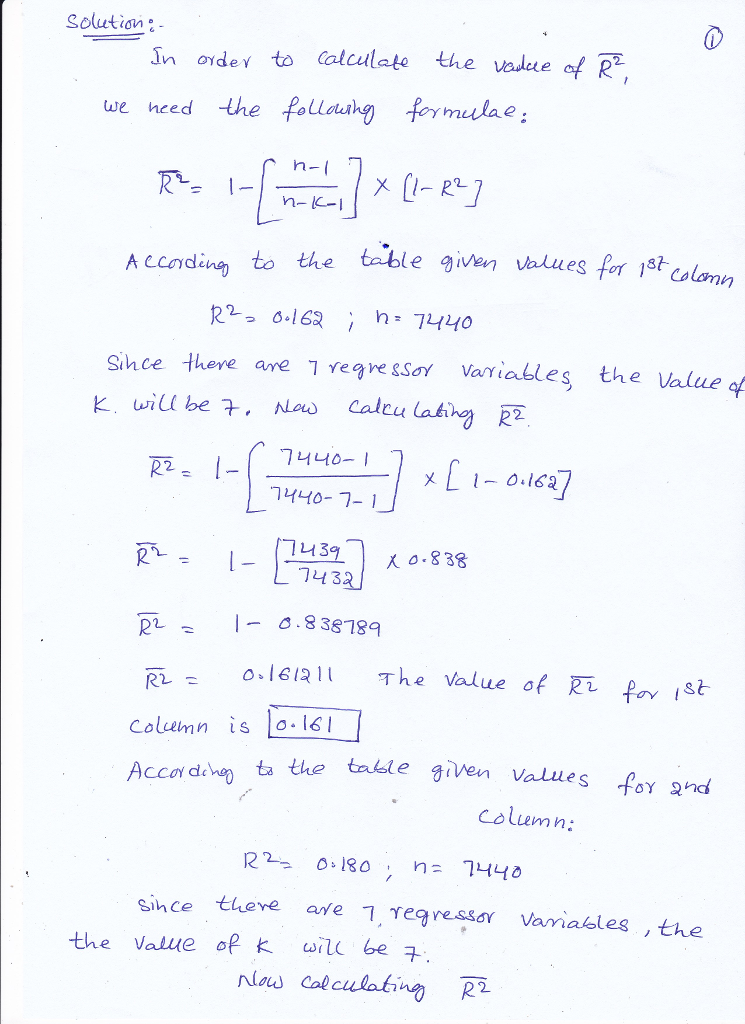 Solution:-
①
In order to calculate the value of R̅²,
we need the following formulae:
R̅² = 1-[n-1/n-K-1] × [1-R²]
According to the table given values for 1st colomn
R² = 0.162 ; n = 7440
Since there are 7 regressor variables, the value of
K. will be 7. Now calculating R̅².
R̅² = 1-[7440-1/7440-7-1] × [1-0.162]
R̅² = 1-[7439/7432] × 0.838
R̅² = 1- 0.838789
R̅² = 0.161211 The value of R̅² for 1st
column is 0.161
According to the table given values for 2nd
column:
R² = 0.180 ; n = 7440
since there are 7, regressor variables, the
the value of K will be 7.
Now calculating R̅²